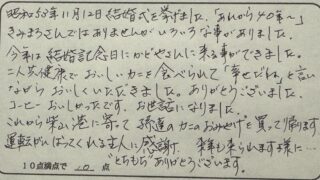 昭和52年11月12日結婚式を挙げました。「あれから40年〜」
きみまろさんではありませんがいろいろな事がありました。
今年は結婚記念日にかどやさんに来る事ができました。
二人共健康でおいしいカニを食べられて「幸せだね」と言い
ながらおいしくいただきました。ありがとうございました。
コーヒーおいしかったです。お世話になりました。
これから柴山港に寄って孫達のカニのおみやげを買って帰ります。
運転がんばってくれる主人に感謝 来年も来られます様に…
"とちもち"ありがとうございます。
10点満点で 10 点